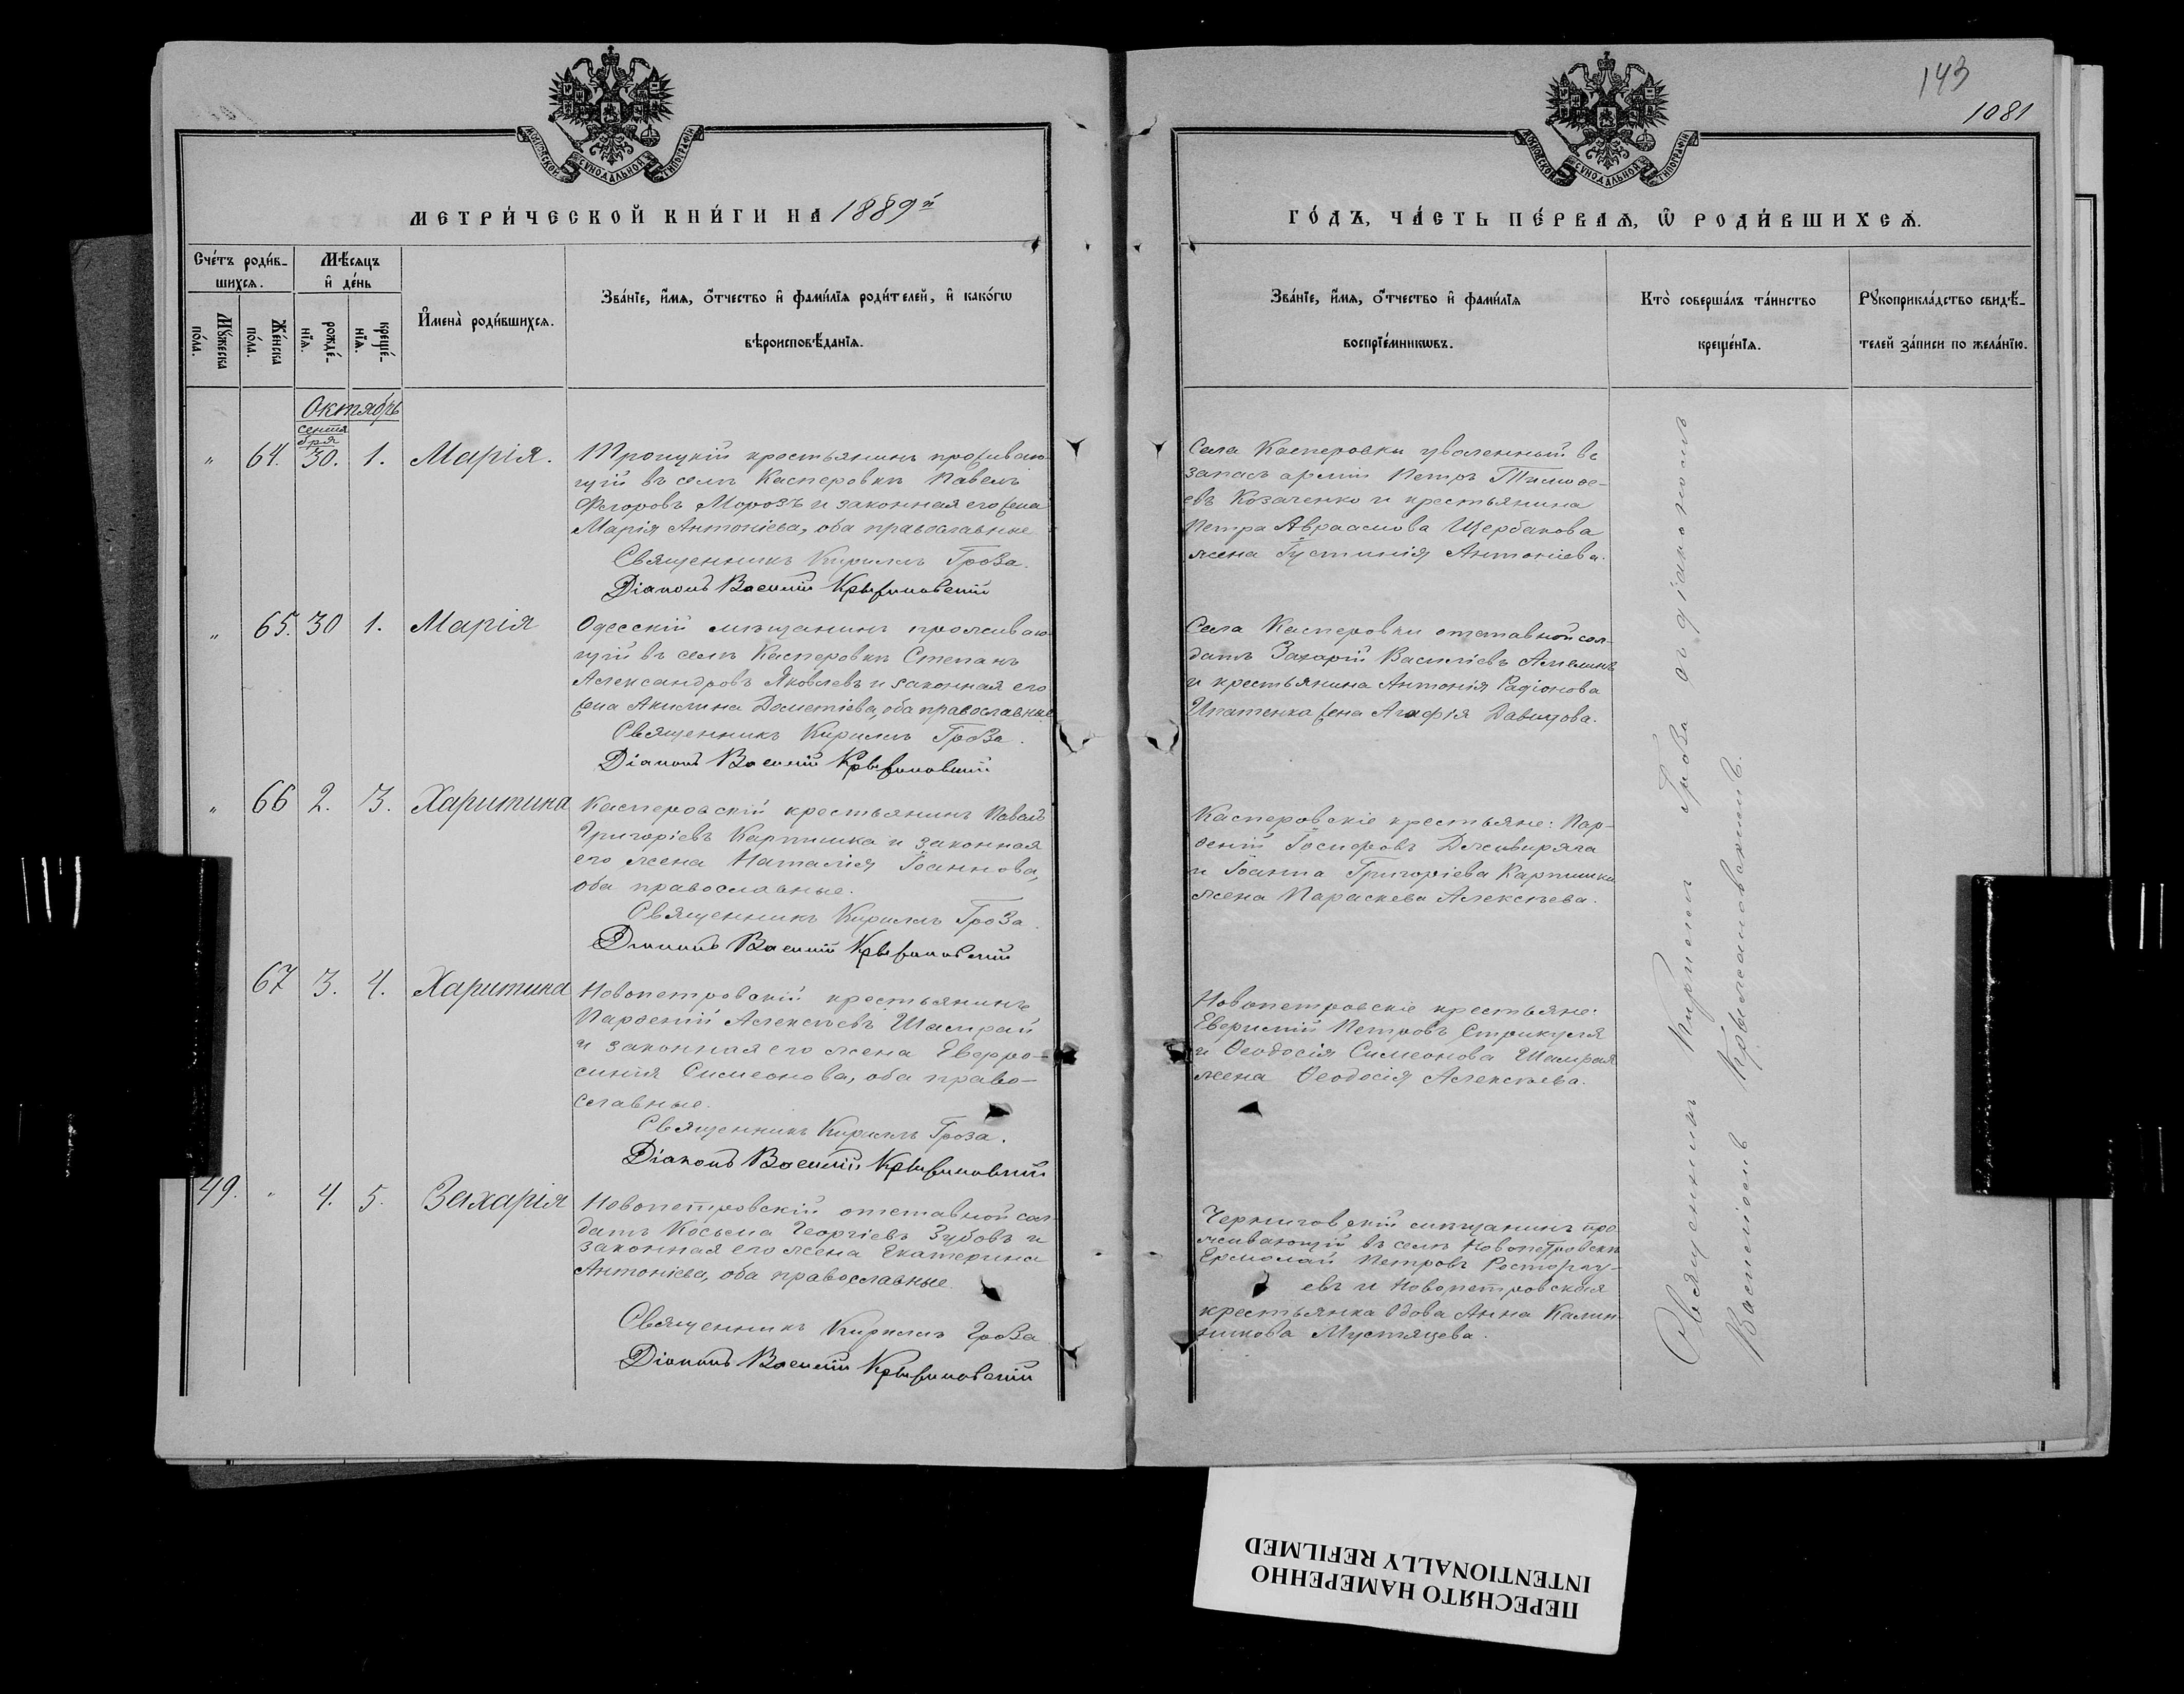 143
1081
МОСКОВСКОЙ СУНОДАЛЬНОЙ ТИПОГРАФІИ
МОСКОВСКОЙ СУНОДАЛЬНОЙ ТИПОГРАФІИ
МЕТРИ́ЧЕСКОЙ КНИ́ГИ НА 1889й
ГО́ДЪ, ЧА́СТЬ ПЕ́РВАѦ, Ѡ РОДИ́ВШИХСѦ.
Сче́тъ роди́в-
шихсѧ.
Мꙋ́жеска по́ла.
Же́нска по́ла.
Мѣ́сѧцъ
и҆ де́нь
рожде́-нїѧ.
креще́-нїѧ.
И҆мена̀ роди́вшихсѧ.
Зва́нїе, и҆́мѧ, ѻ҆́тчество и҆ фами́лїѧ роди́телей, и҆ како́гѡ
вѣроисповѣ́данїѧ.
Зва́нїе, и҆́мѧ, ѻ҆́тчество и҆ фами́лїѧ
воспрїе́мникѡвъ.
Кто̀ соверша́лъ та́инство
креще́нїѧ.
Рꙋкоприкла́дство свидѣ́-
телей за́писи по жела́нїю.
Октябрь
сентя
бря
" 64. 30. 1. Марія.
Троицкій крестьянинъ проживаю-
щій въ селѣ Касперовкѣ Павелъ
Ѳеоровъ Морозъ и законная его жена
Марія Антоніева, оба православные
Священникъ Кириллъ Гроза.
Діаконъ Василій Крыжановскій
Села Касперовки уволенный въ
запасъ арміи Петръ Тимоѳе-
евъ Козаченко и крестьянина
Петра Авраамова Щербакова
жена Іустинія Антоніева.
" 65. 30 1. Марія
Одесскій мѣщанинъ проживаю-
щій въ селѣ Касперовкѣ Степанъ
Александровъ Яковлевъ и законная его
жена Акилина Дометіева, оба православные
Священникъ Кириллъ Гроза.
Діаконъ Василій Крыжановскій
Села Касперовки отставной сол-
датъ Захарій Василіевъ Амелинъ
и крестьянина Антонія Радіонова
Ипатенка жена Агафія Давидова.
" 66 2. 3. Харитина
Касперовскій крестьянинъ Павелъ
Григоріевъ Карпишка и законная
его жена Наталія Іоаннова,
оба православные.
Священникъ Кириллъ Гроза.
Діаконъ Василій Крыжановскій
Касперовскіе крестьяне: Пар-
ѳеній Іосифовъ Дживиряга
и Іоанна Григоріева Карпишки
жена Параскева Алексѣева.
67 3. 4. Харитина
Новопетровскій крестьянинъ
Парѳеній Алексѣевъ Шамрай
и законная его жена Евфро-
синія Симеонова, оба право-
славные.
Священникъ Кириллъ Гроза.
Діаконъ Василій Крыжановскій
Новопетровскіе крестьяне:
Петровъ Стрикуля
и Ѳеодосія Симеонова Шамрая
жена Ѳеодосія Алексѣева.
49. " 4. 5. Захарія
Новопетровскій отставной сол-
датъ Косьма Георгіевъ Зубовъ и
законная его жена Екатерина
Антоніева, оба православные
Священникъ Кириллъ Гроза
Діаконъ Василій Крыжановскій
Черниговскій мѣщанинъ про-
живающій въ селѣ Новопетровскѣ
Ермолай Петровъ Расторгу-
евъ и Новопетровская
крестьянка вдова Анна Калин-
никова
Священникъ Кириллъ Гроза съ діакономъ
Василіемъ Крыжановскимъ.
ПЕРЕСНЯТО НАМЕРЕННО
INTENTIONALLY REFILMED